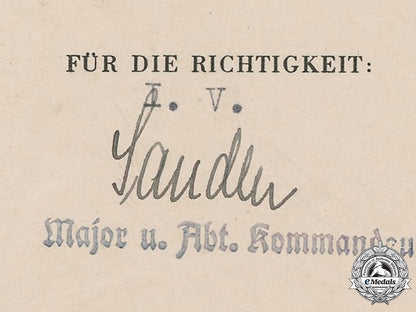 FÜR DIE RICHTIGKEIT:
I. V.
Sandler
Major u. Abt. Kommandeu
eMedals